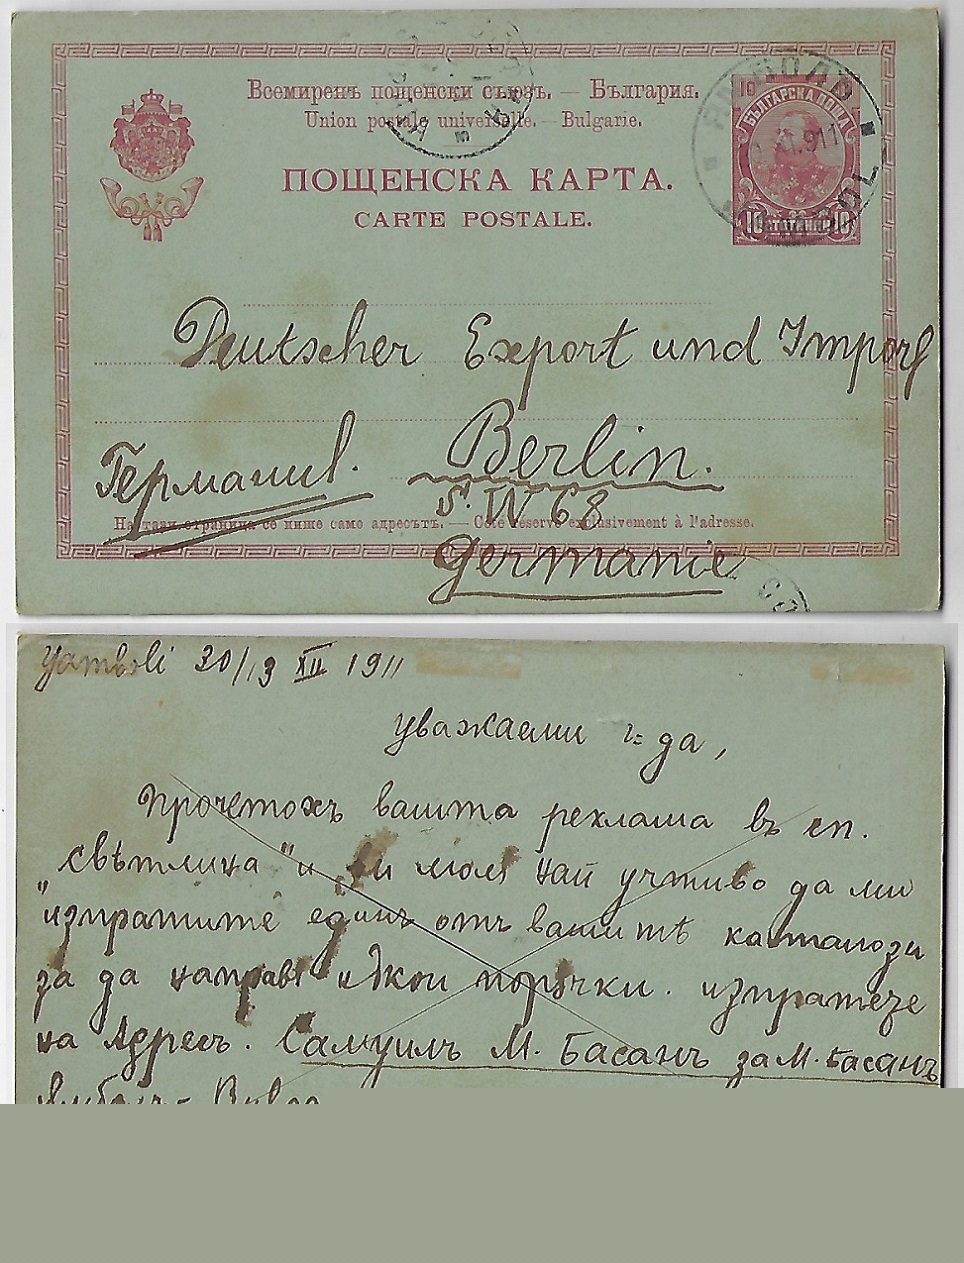 Всемиренъ пощенски съюзъ. — България.
Union postale universelle. — Bulgarie.
ПОЩЕНСКА КАРТА.
CARTE POSTALE.
10
БЪЛГАРСКА ПОЩА
10 СТОТИНКИ 10
ЯМБОЛЪ
911
Deutscher Export und Import
Berlin.
Германия.
S. W 68
На тази страница се пише само адресътъ. — Côté réservé exclusivement à l'adresse.
Germanie
Yamboli 30/13 XII 1911
Уважаеми г-да,
Прочетохъ вашта реклама въ сп.
„Свѣтлина" и ви моля най учтиво да ми
изпратите единъ отъ вашитѣ каталози
за да направя нѣкои порѫчки. изпратете
на Адресъ. Самуилъ М. Басанъ за М. Басанъ